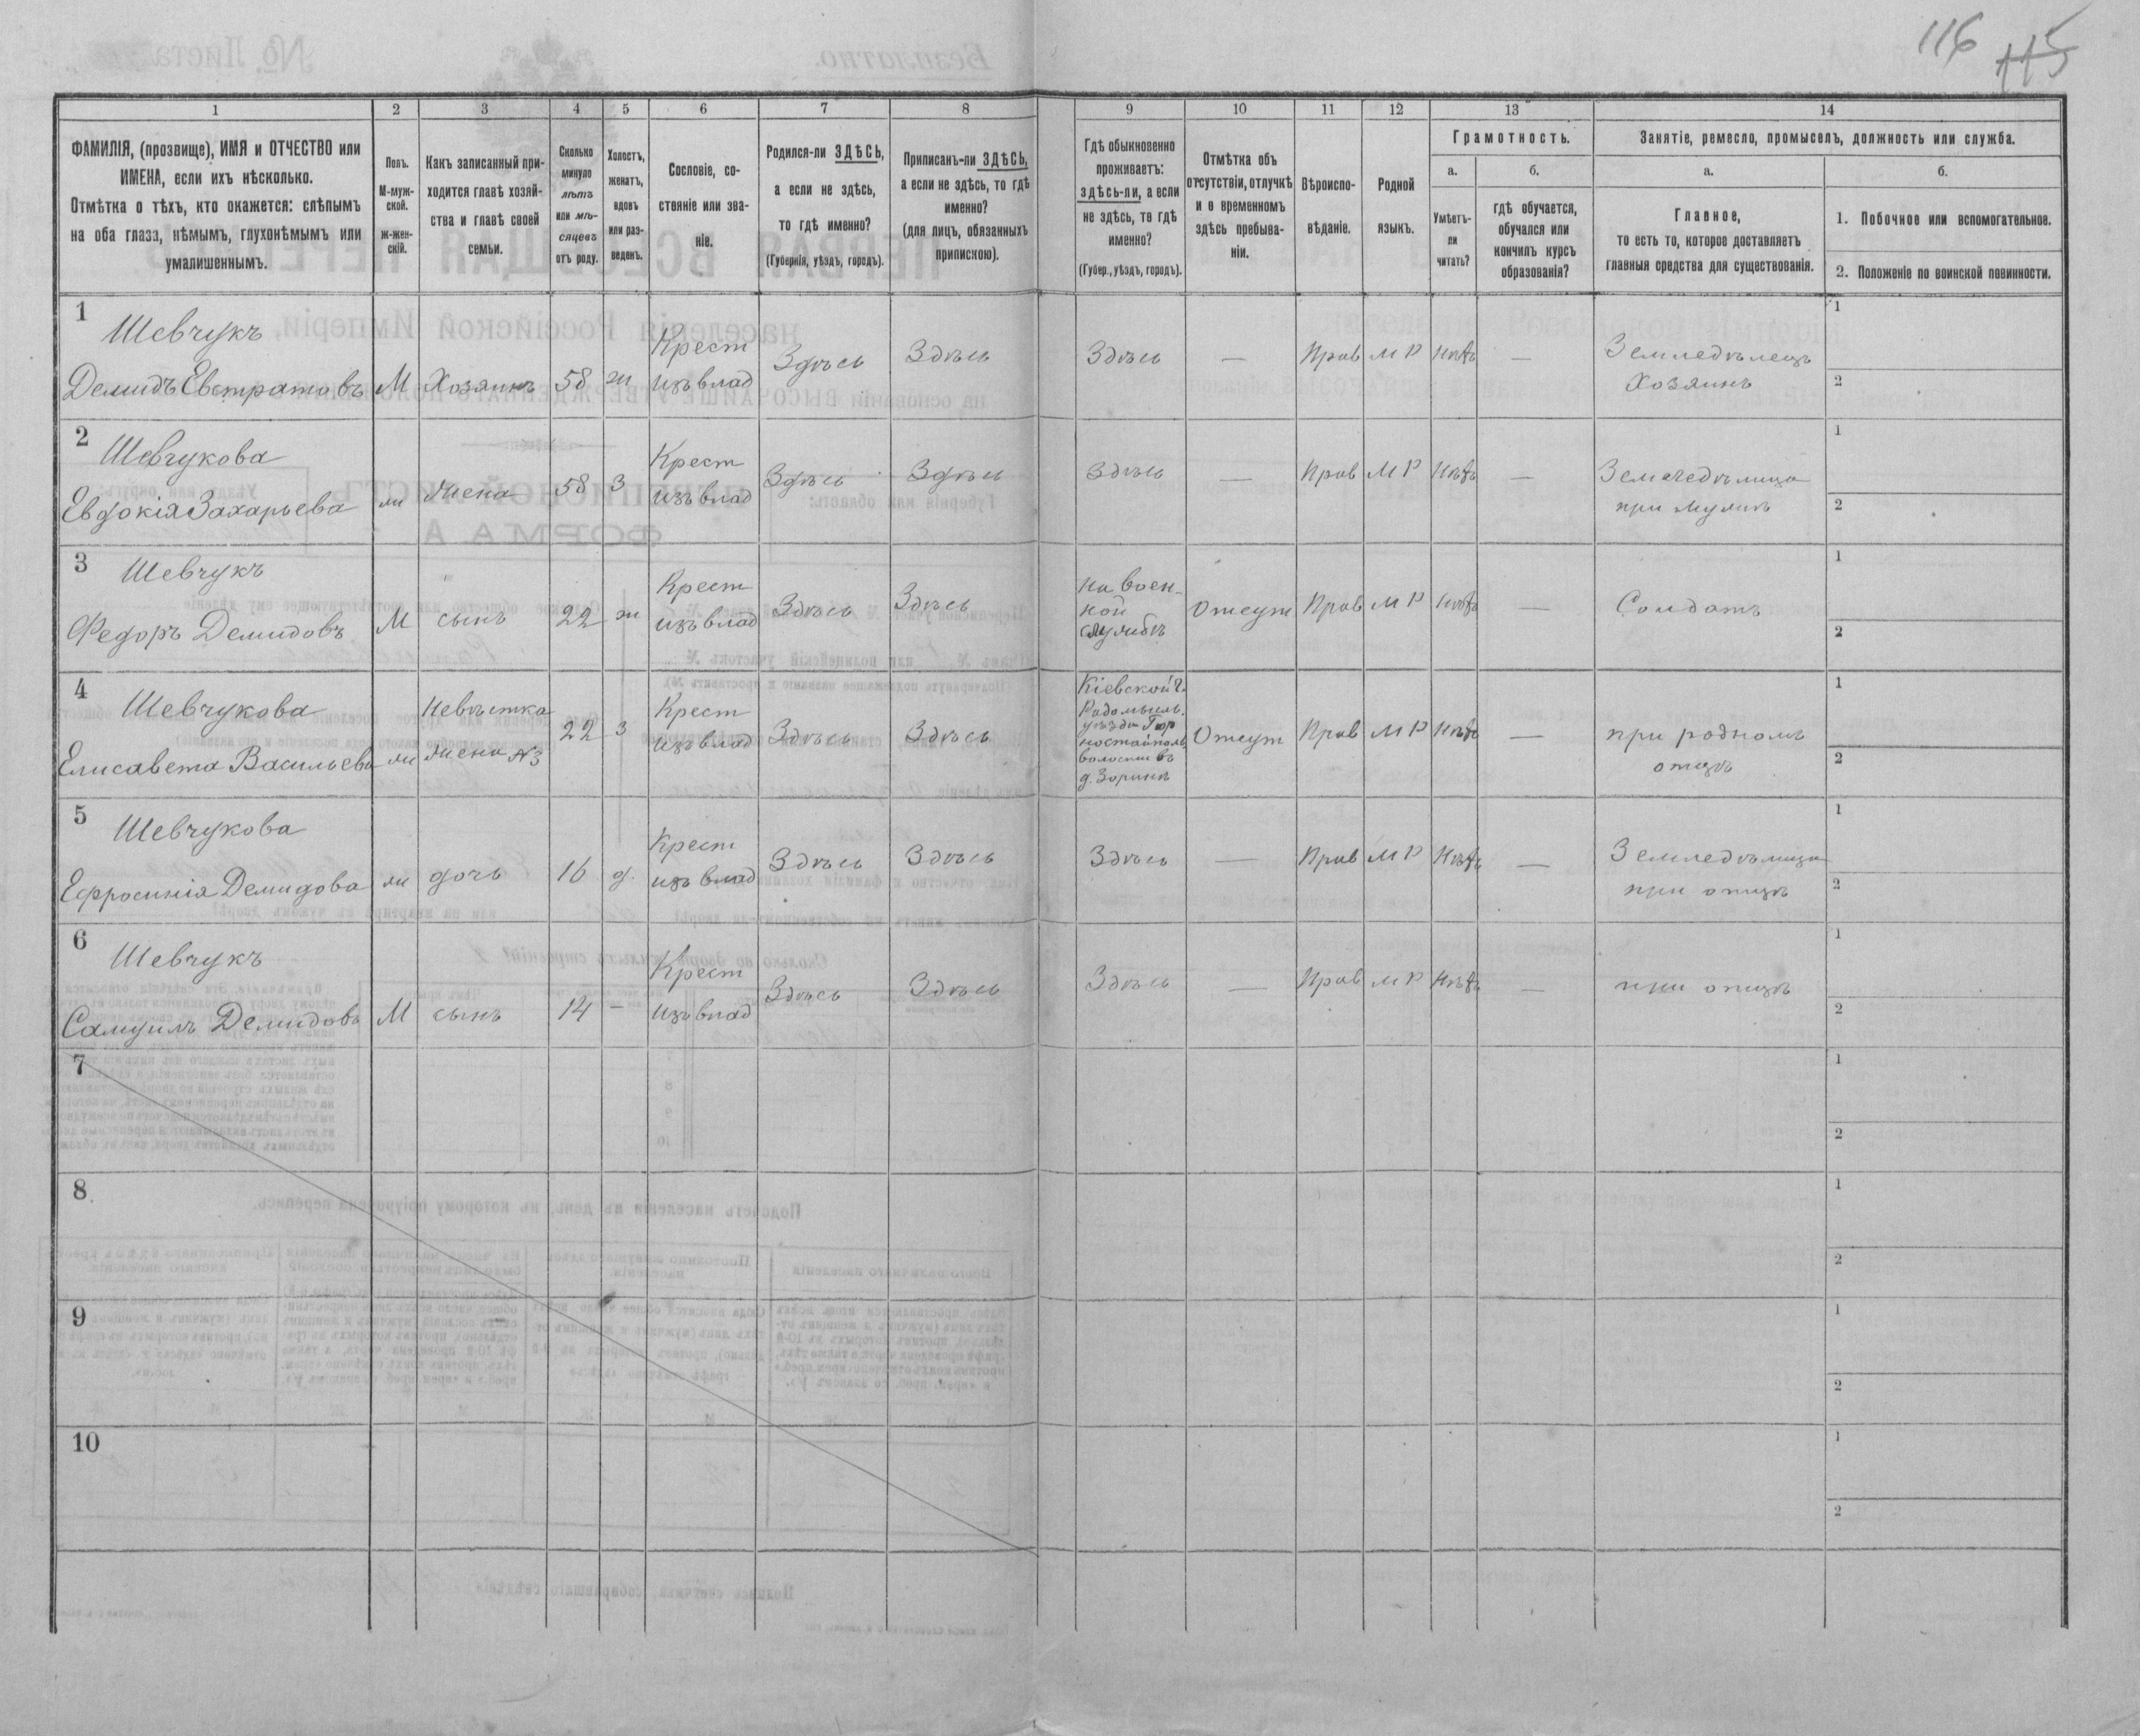 116 115
1 2 3 4 5 6 7 8 9 10 11 12 13 14
ФАМИЛІЯ, (прозвище), ИМЯ и ОТЧЕСТВО или
ИМЕНА, если ихъ нѣсколько.
Отмѣтка о тѣхъ, кто окажется: слѣпымъ
на оба глаза, нѣмымъ, глухонѣмымъ или
умалишеннымъ.
Полъ.
М-муж-
ской.
ж-жен-
скій.
Какъ записанный при-
ходится главѣ хозяй-
ства и главѣ своей
семьи.
Сколько
минуло
лѣтъ
или мѣ-
сяцевъ
отъ роду.
Холостъ,
женатъ,
вдовъ
или раз-
веденъ.
Сословіе, со-
стояніе или зва-
ніе.
Родился-ли ЗДѢСЬ,
а если не здѣсь,
то гдѣ именно?
(Губернія, уѣздъ, городъ).
Приписанъ-ли ЗДѢСЬ,
а если не здѣсь, то гдѣ
именно?
(для лицъ, обязанныхъ
припискою).
Гдѣ обыкновенно
проживаетъ:
здѣсь-ли, а если
не здѣсь, то гдѣ
именно?
(Губер., уѣздъ, городъ).
Отмѣтка объ
отсутствіи, отлучкѣ
и о временномъ
здѣсь пребыва-
ніи.
Вѣроиспо-
вѣданіе.
Родной
языкъ.
Грамотность.
а.
Умѣетъ-
ли
читать?
б.
гдѣ обучается,
обучался или
кончилъ курсъ
образованія?
Занятіе, ремесло, промыселъ, должность или служба.
а.
Главное,
то есть то, которое доставляетъ
главныя средства для существованія.
б.
1. Побочное или вспомогательное.
2. Положеніе по воинской повинности.
1
Шевчукъ
Демидъ Евстратовъ
М
Хозяинъ
58
ж
Крест
изъ влад
Здѣсь
Здѣсь
Здѣсь
—
Прав
М Р
Нѣтъ
—
Земледѣлецъ
Хозяинъ
1
2
2
Шевчукова
Евдокія Захарьева
ж
жена
58
З
Крест
изъ влад
Здѣсь
Здѣсь
Здѣсь
—
Прав
М Р
Нѣтъ
—
Земледѣлица
при мужѣ
1
2
3
Шевчукъ
Федоръ Демидовъ
М
сынъ
22
ж
Крест
изъ влад
Здѣсь
Здѣсь
На воен-
ной
службѣ
Отсут
Прав
М Р
Нѣтъ
—
Солдатъ
1
2
4
Шевчукова
Елисавета Васильева
ж
Невѣстка
жена №3
22
З
Крест
изъ влад
Здѣсь
Здѣсь
Кіевской г.
Радомысль.
уѣзда Гор
ностайполь
волости въ
д. Зоринѣ
Отсут
Прав
М Р
Нѣтъ
—
при родномъ
отцѣ
1
2
5
Шевчукова
Ефросинія Демидова
ж
дочь
16
д.
Крест
изъ влад
Здѣсь
Здѣсь
Здѣсь
—
Прав
М Р
Нѣтъ
—
Земледѣлица
при отцѣ
1
2
6
Шевчукъ
Самуилъ Демидовъ
М
сынъ
14
-
Крест
изъ влад
Здѣсь
Здѣсь
Здѣсь
—
Прав
М Р
Нѣтъ
—
при отцѣ
1
2
7
1
2
8
1
2
9
1
2
10
1
2